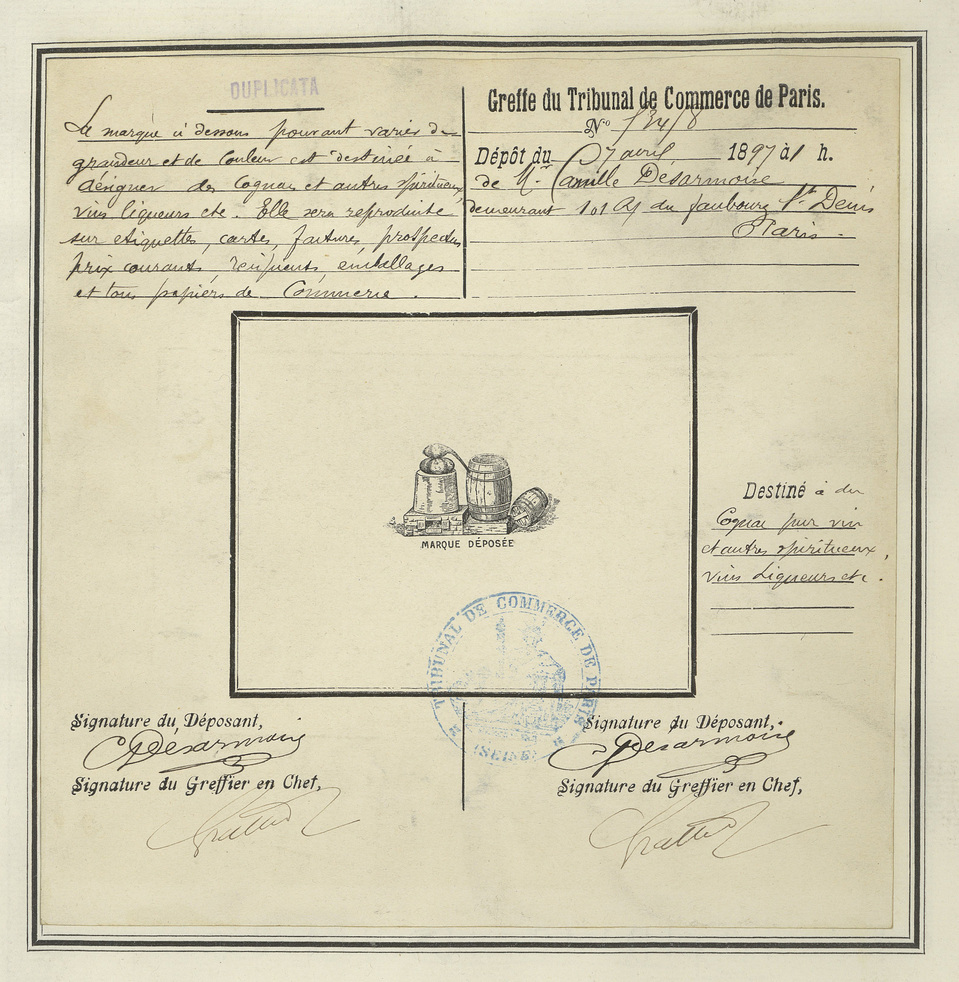 DUPLICATA
La marque ci dessous pouvant varier de
grandeur et de Couleur est destinée à
désigner des Cognac et autres spiritueux,
vins liqueurs etc. Elle sera reproduite
sur etiquettes, cartes, factures, prospectus
prix courants, récipients, emballages
et tous papiers de Commerce.
Greffe du Tribunal de Commerce de Paris.
No
Dépôt du 7 avril 1897 à 1 h.
de Mr Camille Désarmoise
demeurant 101 du faubourg St Denis
Paris.
MARQUE DÉPOSÉE
Destiné à du
Cognac pur vin
et autres spiritueux,
vins Liqueurs etc.
TRIBUNAL DE COMMERCE DE PARIS
(SEINE)
Signature du Déposant,
CDésarmoise
Signature du Greffier en Chef,
Signature du Déposant,
CDésarmoise
Signature du Greffier en Chef,